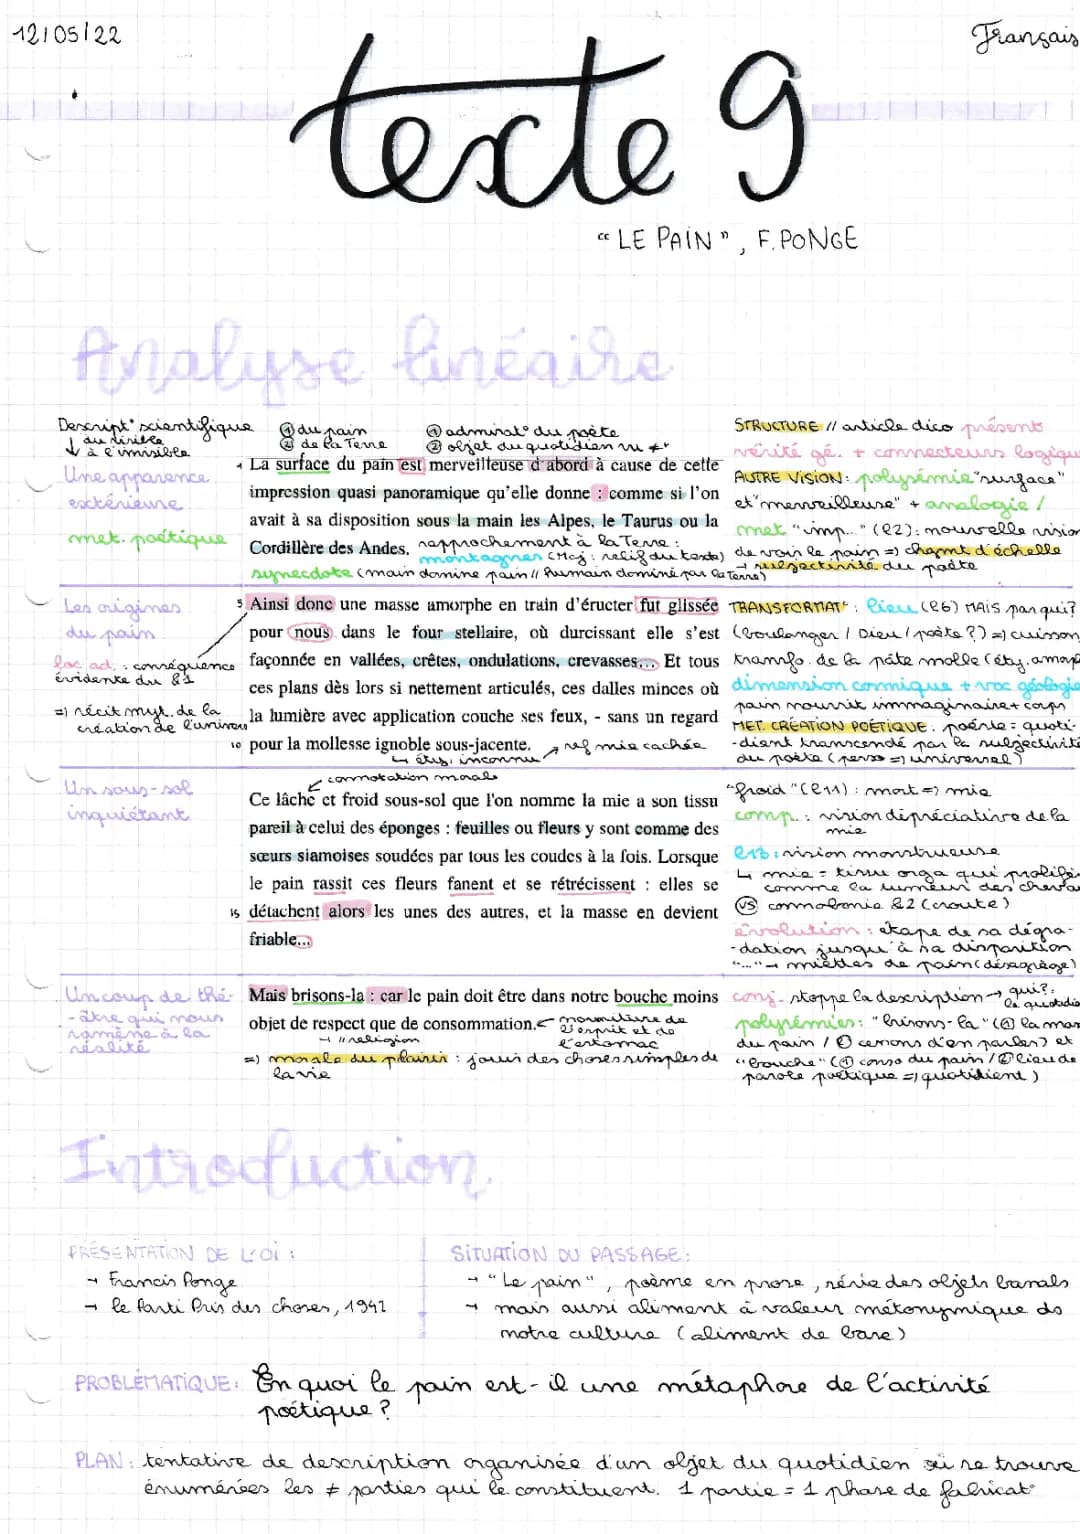 12/05/22
Français
texte 9
“ LE PAIN ” , F. PONGE
Analyse linéaire
Descript° scientifique
↓ du visible
à l'invisible
① du pain
② de la Terre
① admirat° du poète
② objet du quotidien vu ≠t
Une apparence
extérieure
met. poétique
La surface du pain est merveilleuse d'abord à cause de cette
impression quasi panoramique qu'elle donne : comme si l'on
avait à sa disposition sous la main les Alpes, le Taurus ou la
Cordillère des Andes.
rapprochement à la Terre :
montagnes (Maj : relief du texte)
synecdote (main domine pain // humain dominé par la Terre)
STRUCTURE // article dico présent
vérité gé. + connecteurs logiqu
AUTRE VISION : polysémie "surface"
et "merveilleuse" + analogie /
met "imp..." (l2) : nouvelle vision
de voir le pain => chgmt d'échelle
→ subjectivité du poète
Les origines
du pain
loc. ad. : conséquence
évidente du §1
=> récit myt. de la
création de l'univers
5 Ainsi donc une masse amorphe en train d'éructer fut glissée
pour nous dans le four stellaire, où durcissant elle s'est
façonnée en vallées, crêtes, ondulations, crevasses... Et tous
ces plans dès lors si nettement articulés, ces dalles minces où
la lumière avec application couche ses feux, - sans un regard
10 pour la mollesse ignoble sous-jacente.
→ ref mie cachée
↳ éty. inconnu
TRANSFORMAT° : lieu (l6) MAIS par qui?
(boulanger / Dieu / poète ?) => cuisson,
transfo. de la pâte molle (éty. amorp
dimension cosmique + voc géologie
pain nourrit immaginaire + corps
MET. CRÉATION POÉTIQUE : poésie = quoti-
-dient transcendé par la subjectivité
du poète (perso => universel)
Un sous-sol
inquiétant
connotation morale
Ce lâche et froid sous-sol que l'on nomme la mie a son tissu
pareil à celui des éponges : feuilles ou fleurs y sont comme des
sœurs siamoises soudées par tous les coudes à la fois. Lorsque
le pain rassit ces fleurs fanent et se rétrécissent : elles se
15 détachent alors les unes des autres, et la masse en devient
friable...
"froid" (l11) : mort => mie
comp. : vision dépréciative de la
mie
l13 : vision monstrueuse
↳ mie = tissu orga qui prolifè
comme la tumeur des chevau
VS cosmogonie §2 (croute)
évolution : étape de sa dégra-
-dation jusqu'à sa disparition
"..." → miettes de pain (désagrège)
Un coup de thé-
-âtre qui nous
ramène à la
réalité
Mais brisons-la : car le pain doit être dans notre bouche moins
objet de respect que de consommation.
→ // religion
nourriture de
l'esprit et de
l'estomac
=> morale du plaisir : jouir des choses simples de
la vie
conj. stoppe la description → qui? :
le quotidie
polysémies : "brisons-la" (① la man
du pain / ② cessons d'en parler) et
"bouche" (① conso du pain / ② lieu de
parole poétique => quotidient)
Introduction
PRÉSENTATION DE L'OI :
→ Francis Ponge
→ le Parti Pris des choses, 1942
SITUATION DU PASSAGE :
→ "Le pain", poème en prose, série des objets banals
→ mais aussi aliment à valeur métonymique ds
notre culture (aliment de base)
PROBLÉMATIQUE : En quoi le pain est-il une métaphore de l'activité
poétique ?
PLAN : tentative de description organisée d'un objet du quotidien où se trouve
énumérées les ≠ parties qui le constituent. 1 partie = 1 phase de fabricat°